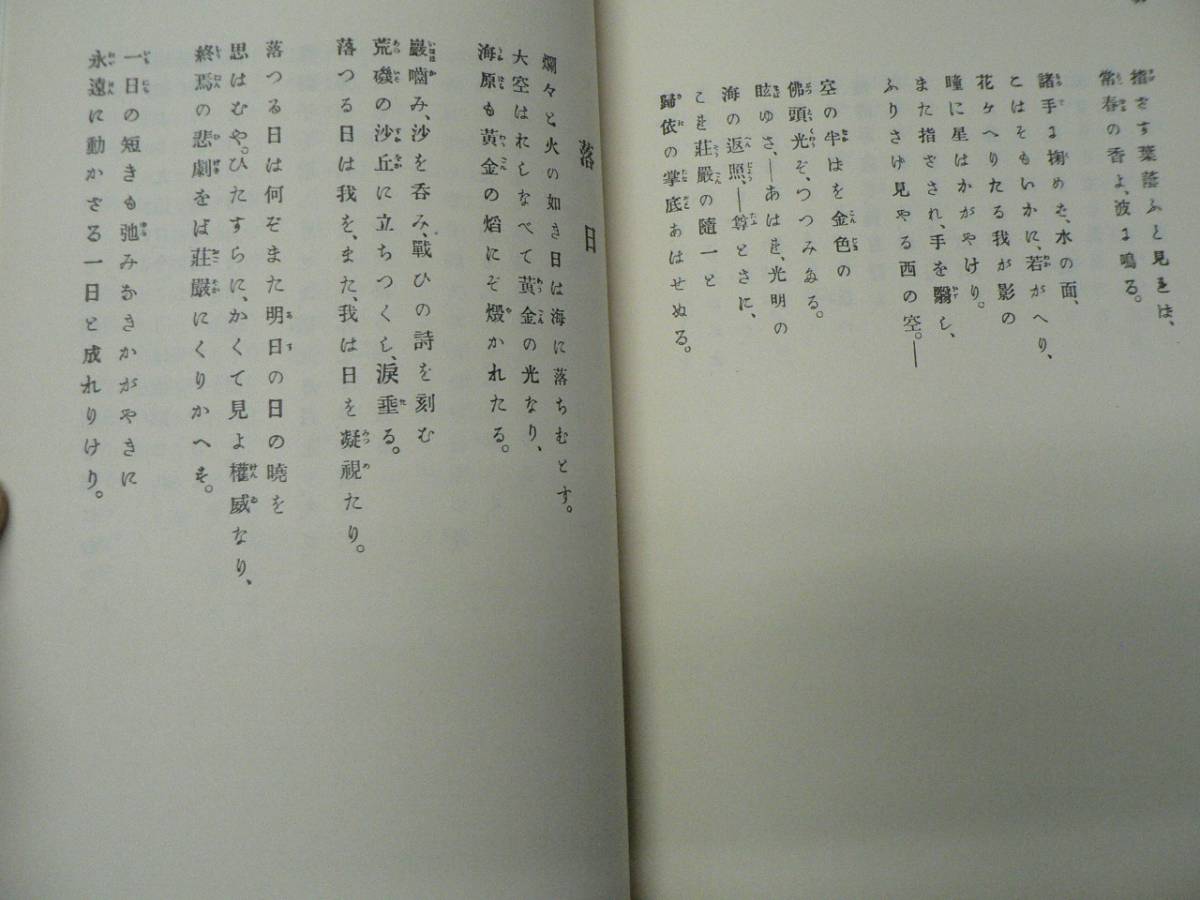 指をす葉蔭ふと見をは、
常春の香よ、波ま鳴る。
諸手ま掬めを、水の面、
こはそもいかに、若がへり、
花ヶへりたる我が影の
瞳に星はかがやけり。
また指ざされ、手を翳し、
ふりさけ見やる西の空。―
空の半はを金色の
佛頭光ぞ、つつみゐる。
眩ゆさ、―あはを、光明の
海の返照、―尊とさに、
こを莊嚴の隨一と
歸依の掌底あはせぬる。
落日
爛々と火の如き日は海に落ちむとす。
大空はれしなべて黃金の光なり、
海原も黃金の焰にぞ燬かれたる。
巖嚙み、沙を呑み、戰ひの詩を刻む
荒磯の沙丘に立ちつくし、淚垂る。
落つる日は我を、また、我は日を凝視たり。
落つる日は何ぞまた明日の日の曉を
思はむや。ひたすらに、かくて見よ權威なり、
終焉の悲劇をば莊嚴にくりかへそ。
一日の短きも弛みなきかがやきに
永遠に動かざる一日と成れりけり。